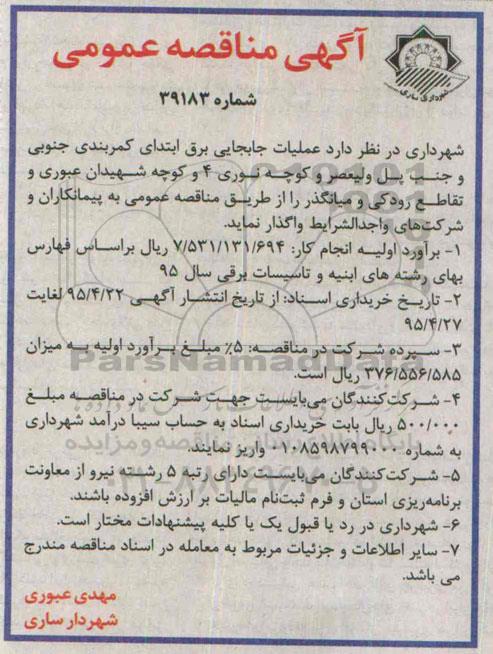 آگهی مناقصه عمومی
شهرداری ساری
شماره ۳۹۱۸۳
شهرداری در نظر دارد عملیات جابجایی برق ابتدای کمربندی جنوبی
و جنب پل ولیعصر و کوچه نوری ۴ و کوچه شهیدان عبوری و
تقاطع رودکی و میانگذر را از طریق مناقصه عمومی به پیمانکاران و
شرکت‌های واجدالشرایط واگذار نماید.
۱- برآورد اولیه انجام کار: ۷/۵۳۱/۱۳۱/۶۹۴ ریال براساس فهارس
بهای رشته های ابنیه و تاسیسات برقی سال ۹۵
۲- تاریخ خریداری اسناد: از تاریخ انتشار آگهی ۹۵/۴/۲۲ لغایت
۹۵/۴/۲۷
۳- سپرده شرکت در مناقصه: ۵٪ مبلغ برآورد اولیه به میزان
۳۷۶/۵۵۶/۵۸۵ ریال است.
۴- شرکت‌کنندگان می‌بایست جهت شرکت در مناقصه مبلغ
۵۰۰/۰۰۰ ریال بابت خریداری اسناد به حساب سیبا درآمد شهرداری
به شماره ۰۱۰۸۵۹۸۷۹۹۰۰۰ واریز نمایند.
۵- شرکت‌کنندگان می‌بایست دارای رتبه ۵ رشته نیرو از معاونت
برنامه‌ریزی استان و فرم ثبت‌نام مالیات بر ارزش افزوده باشند.
۶- شهرداری در رد یا قبول یک یا کلیه پیشنهادات مختار است.
۷- سایر اطلاعات و جزئیات مربوط به معامله در اسناد مناقصه مندرج
می باشد.
مهدی عبوری
شهردار ساری
ParsNamadData